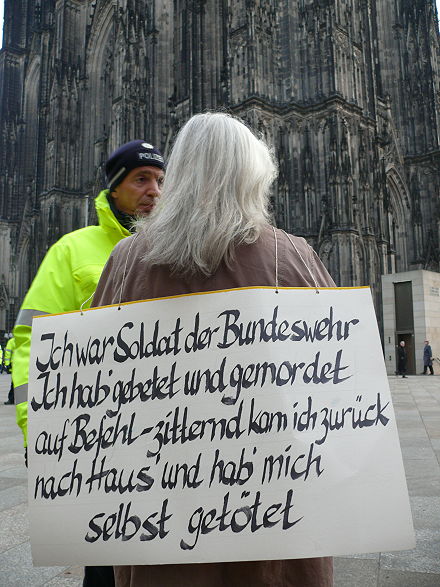 POLIZEI
Ich war Soldat der Bundeswehr
Ich hab' gebetet und gemordet
auf Befehl - zitternd kam ich zurück
nach Haus' und hab' mich
selbst getötet